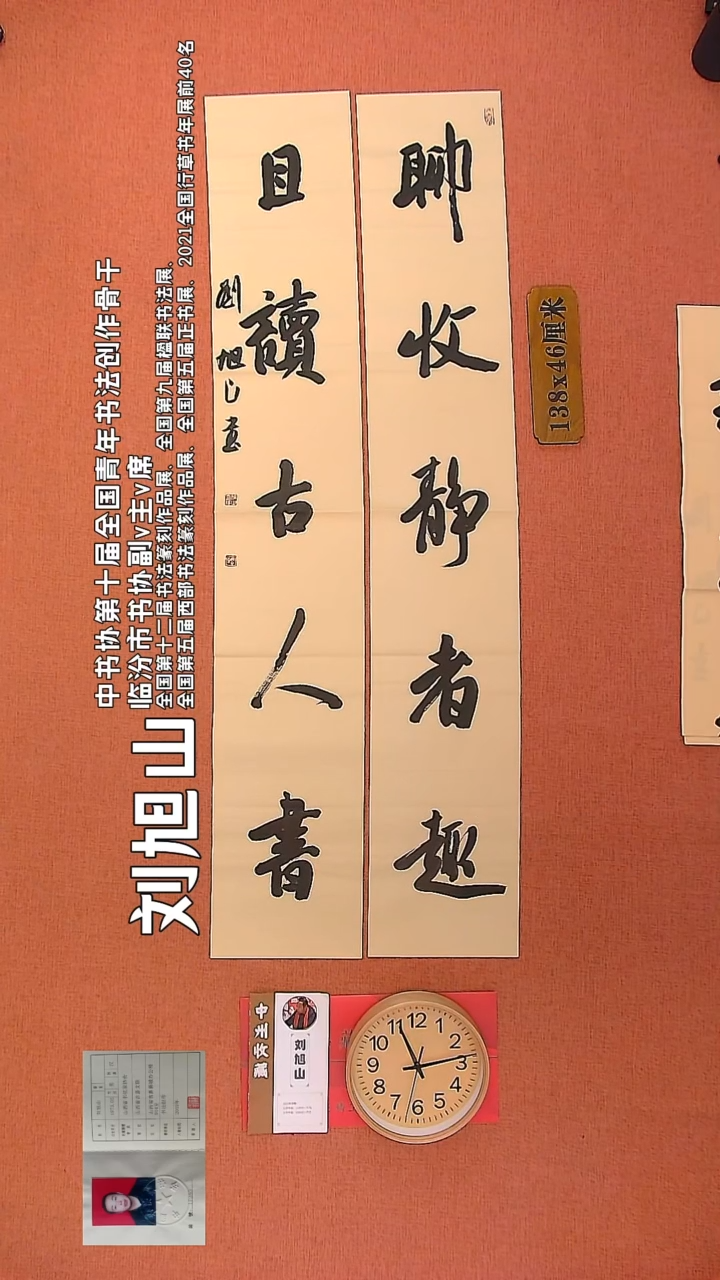 聊收静者趣
且讀古人書
劉旭山書
138x46厘米
刘旭山
中书协第十届全国青年书法创作骨干
临汾市书协副v主v席
全国第十二届书法篆刻作品展、全国第九届楹联书法展、
全国第五届西部书法篆刻作品展、全国第五届正书展、2021全国行草书年展前40名
刘旭山
12
1
2
3
4
5
6
7
8
9
10
11